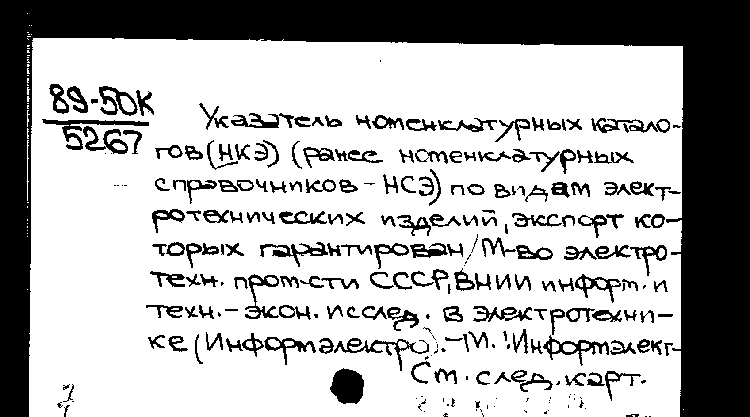 89-50К
5267
Указатель номенклатурных катало-
гов (НКЭ) (ранее номенклатурных
справочников - НСЭ) по видам элект-
ротехнических изделий, экспорт ко-
торых гарантирован / М-во электро-
техн. пром-сти СССР, ВНИИ информ. и
техн.-экон. исслед. в электротехни-
ке (Информэлектро). - М. : Информэлект-
См. след. карт.